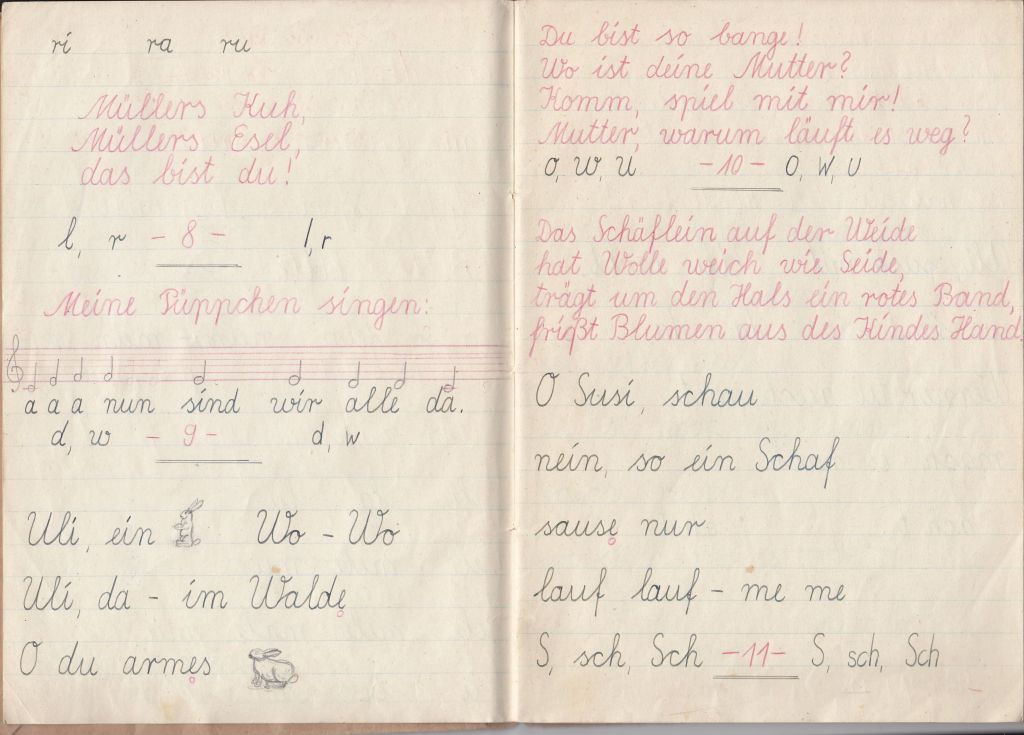 ri ra ru
Müllers Kuh,
Müllers Esel,
das bist du!
l, r - 8 - l, r
Meine Püppchen singen:
a a a nun sind wir alle da.
d, w - 9 - d, w
Uli, ein Wo - Wo
Uli, da - im Walde
O du armes
Du bist so bange!
Wo ist deine Mutter?
Komm, spiel mit mir!
Mutter, warum läuft es weg?
O, W, U - 10 - O, W, U
Das Schäflein auf der Weide
hat Wolle weich wie Seide,
trägt um den Hals ein rotes Band,
frißt Blumen aus des Kindes Hand.
O Susi, schau
nein, so ein Schaf
sause nur
lauf lauf - me me
S, sch, Sch - 11 - S, sch, Sch